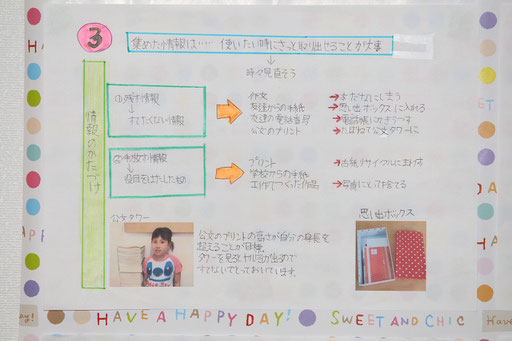 3
集めた情報は…… 使いたい時にさっと取り出せることが大事
時々見直そう
情報のかたづけ
①残す情報
すてたくない情報
作文
友達からの手紙
友達の電話番号
公文のプリント
→本だなにしまう
→思い出ボックスに入れる
→電話帳にかきうつす
→たばねて公文タワーに
②手放す情報
役目をはたしたもの
プリント
学校からの手紙
工作でつくった作品
→古紙リサイクルに出す
→写真にとって捨てる
公文タワー
公文のプリントの高さが自分の身長を
超えることが目標。
タワーを見るとヤル気が出るので
すてないでとっておいています。
思い出ボックス
HAVE A HAPPY DAY!
SWEET AND CHIC
HAPPY
SWEET
HAPPY